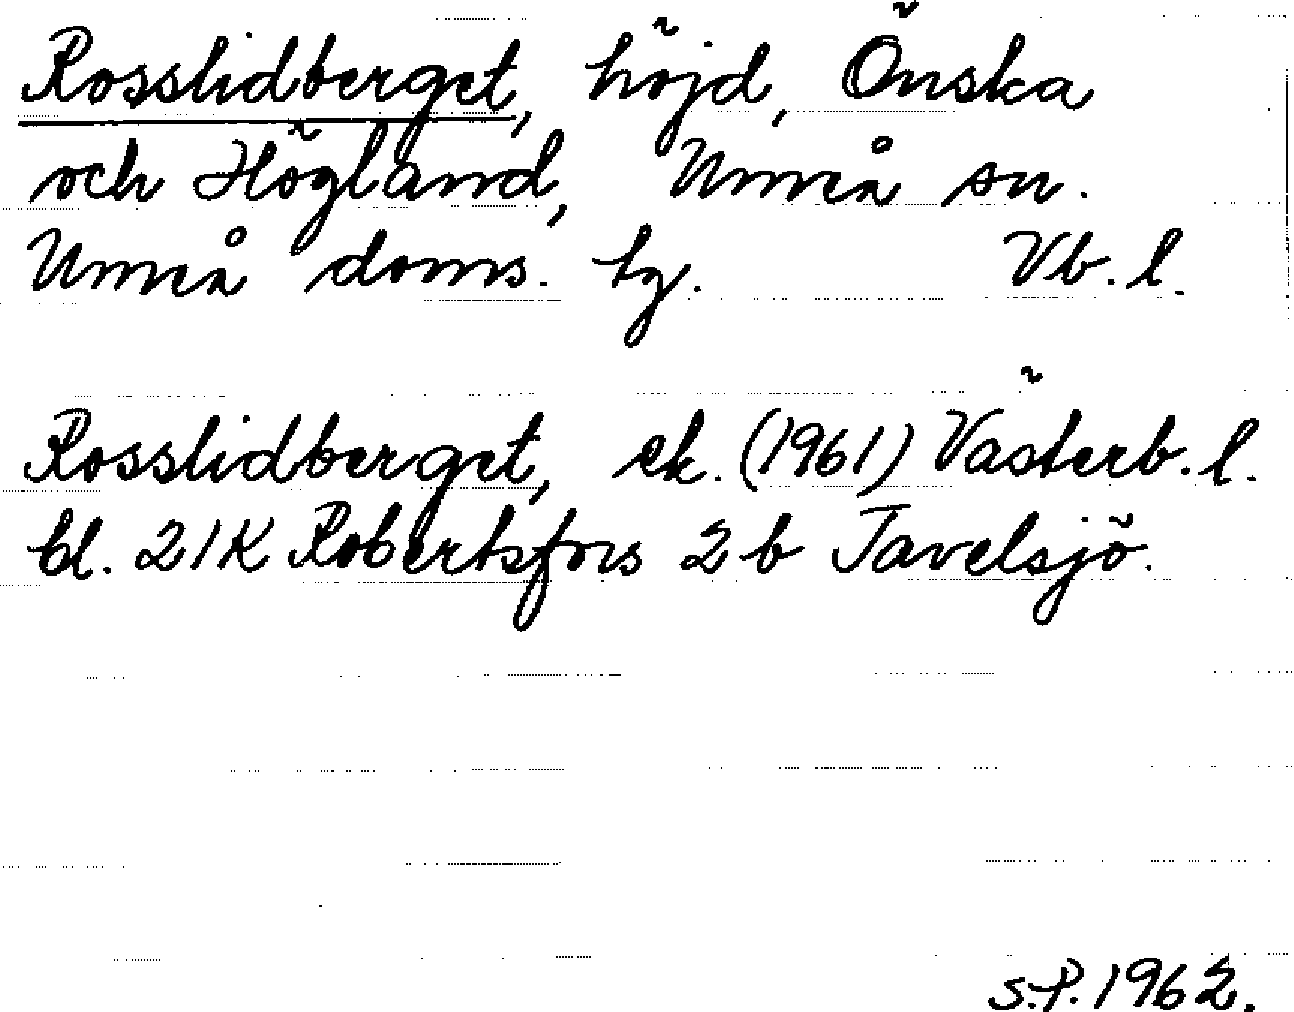 Rosslidberget, höjd, Önska
och Högland, Umeå sn.
Umeå doms. tg. Vb. l.
Rosslidberget, ek. (1961) Västerb. l.
bl. 21K Robertsfors 2 b Tavelsjö.
S.P. 1962.